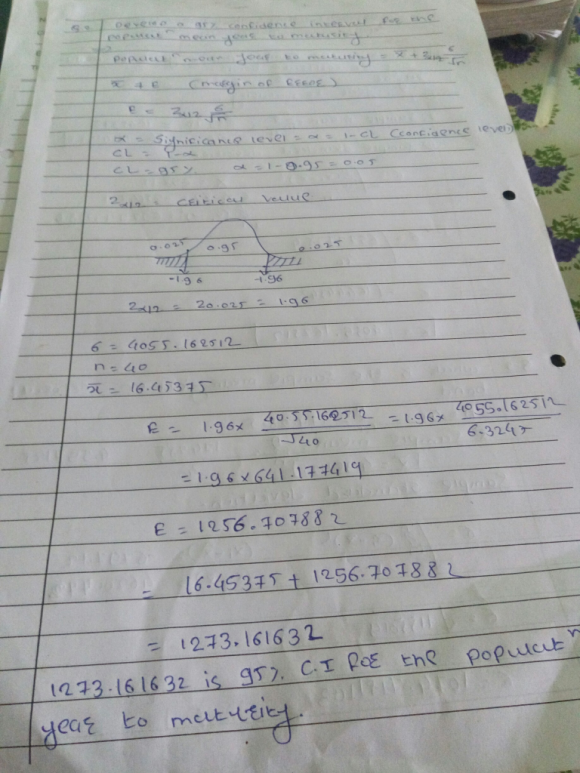 Develop a 95% confidence interval for the
populatⁿ mean year to maturity.
populatⁿ mean year to maturity = x̄ + Zα/2 σ/√n
x̄ + E (margin of error)
E = Zα/2 σ/√n
α = Significance level = α = 1 - CL (confidence level)
CL = 1-α
CL = 95% α = 1-0.95 = 0.05
Zα/2 = critical value
0.025 0.95 0.025
-1.96 1.96
Zα/2 = Z0.025 = 1.96
σ = 4055.162512
n = 40
x̄ = 16.45375
E = 1.96 × 40.55.162512/√40 = 1.96 × 4055.162512/6.3245
= 1.96 × 641.177419
E = 1256.707882
= 16.45375 + 1256.707882
= 1273.161632
1273.161632 is 95% C.I for the populatⁿ
year to maturity.